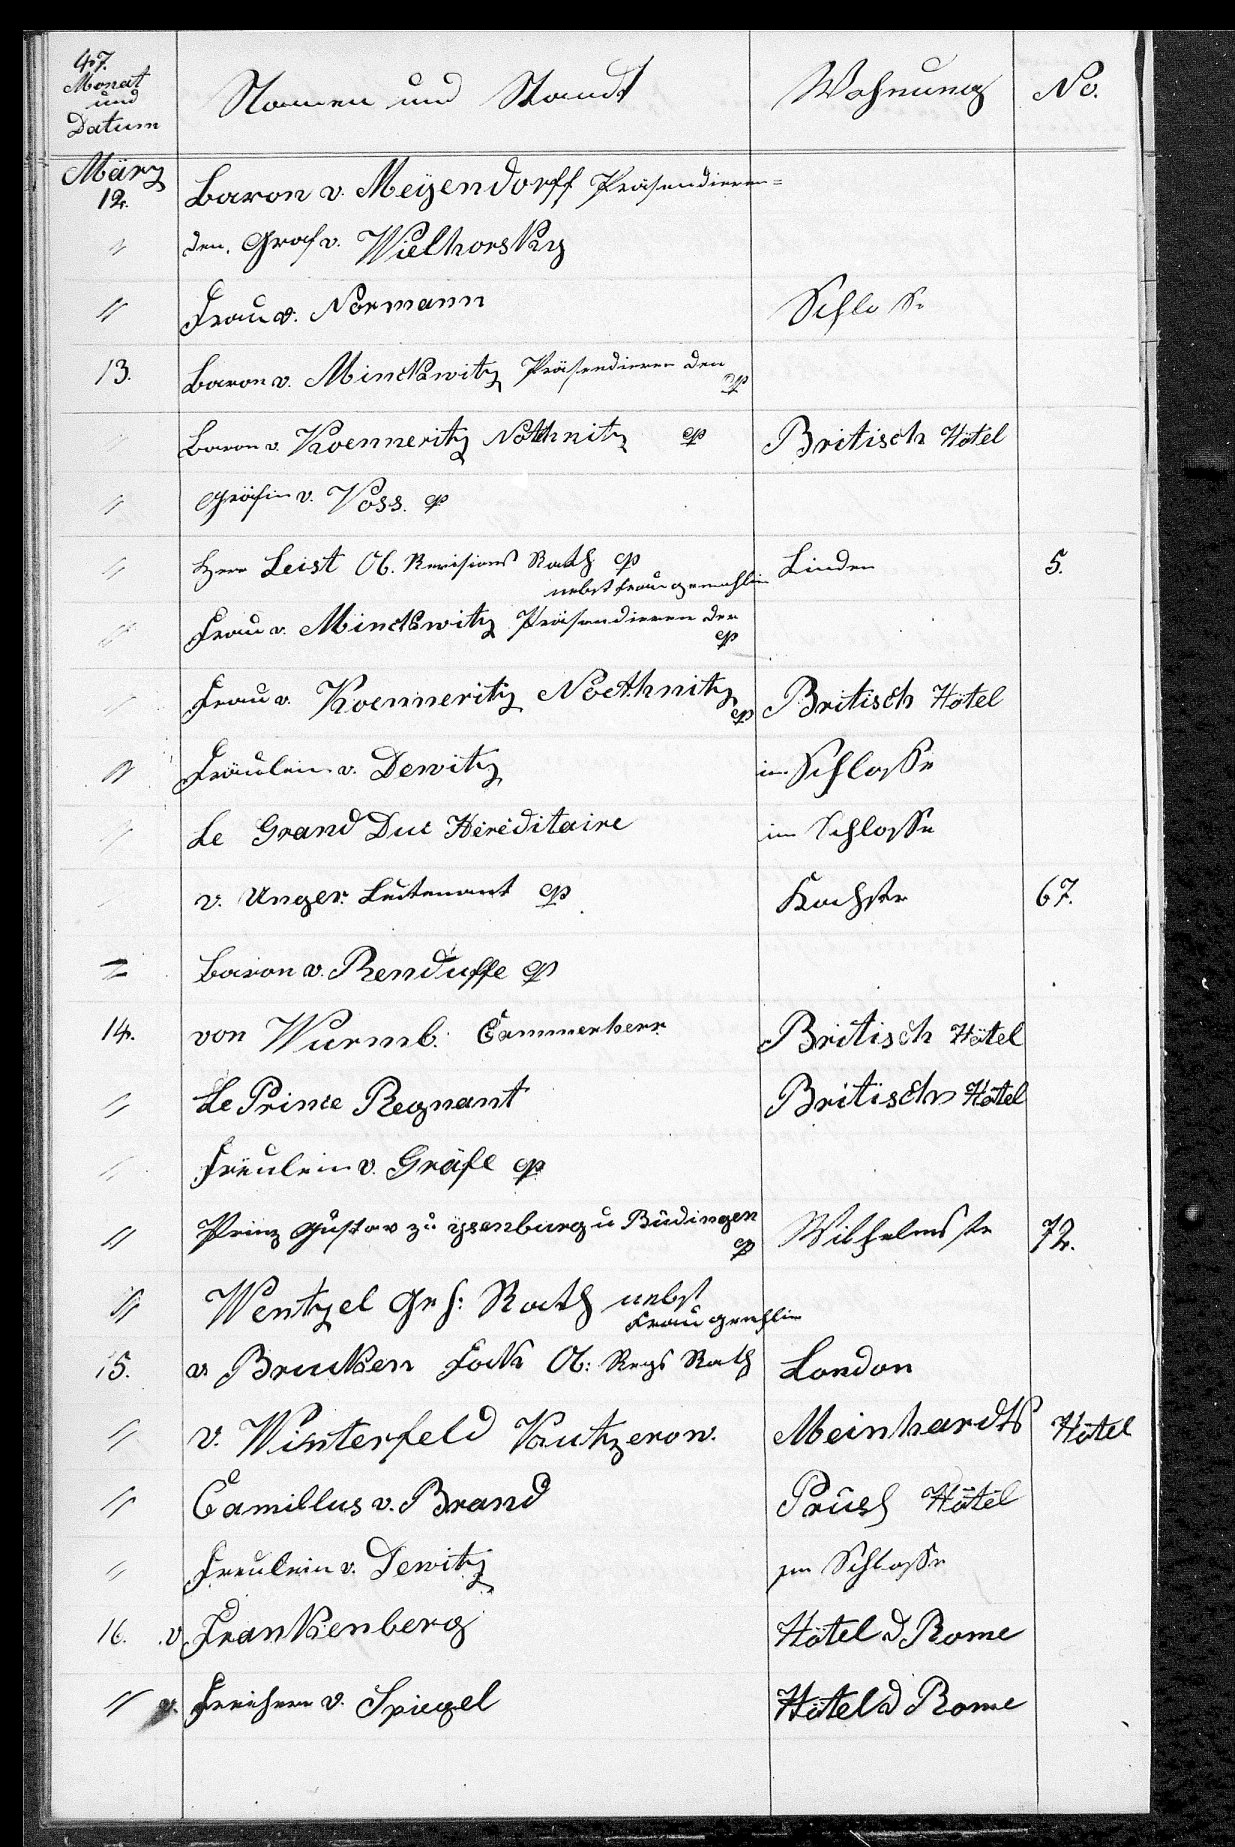 47.
Monat und Datum Namen und Standt Wohnung No.
März 12. Baron v. Meyendorff Präsendieren=
" den. Graf v. Wielhorsky
" Frau v. Normann Schloße
13. Baron v. Minckwitz Präsendieren den
cp
" Baron v. Koenneritz Nöthnitz cp Britisch Hôtel
" Gräfin v. Voss. cp
" Herr Leist Ob. Revisions Rath cp Linden 5.
nebst Frau gemahlin
" Frau v. Minckwitz Präsendieren der
cp
" Frau v. Koenneritz Noethnitz cp Britisch Hôtel
" Fräulein v. Dewitz im Schlosse
" Le Grand Duc Héréditaire im Schlosse
" v. Unger. Leutenant cp Kochstr 67.
" Baron v. Renduffe cp
14. von Wurmb. Cammerherr Britisch Hôtel
" Le Prince Regnant Britisch Hôtel
" Freulein v. Gräfe cp
" Prinz Gustav zu ysenburg u Büdingen cp Wilhelmstr 72.
" Wentzel Geh: Rath nebst
Frau gemhlin
15. v. Brucken Fock Ob: Regs Rath London
" v. Winterfeld Vautzerow. Meinhardts Hôtel
" Camillus v. Brand Prüsch Hôtel
" Freulein v. Dewitz im Schlosse
16. v. Frankenberg Hôtel d Rome
" v. Freiherr v. Spiegel Hôtel d Rome